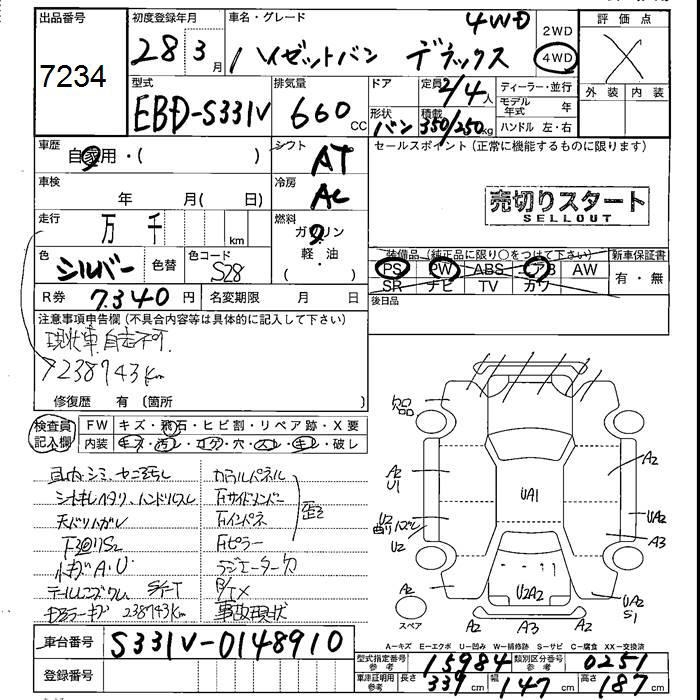 出品番号 初度登録年月 車名・グレード 4WD 2WD 評価点
7234 28 3月 ハイゼットバン デラックス 4WD X
型式 排気量 ドア 定員 ディーラー・並行 外装 内装
EBD-S331V 660 CC 2/4人 モデル年式 年
形状 バン 積載 350/250kg ハンドル 左・右
車歴 自家用・( ) シフト AT セールスポイント(正常に機能するものに限ります)
車検 年 月( 日) 冷房 AC 売切りスタート
SELLOUT
走行 万 千 km 燃料 ガソリン
軽・油
( )
色 シルバー 色替 色コード S28 装備品(純正品に限り○をつけて下さい) 新車保証書
PS PW ABS エアB AW 有・無
SR ナビ TV カワ
R券 7,340円 名変期限 月 日 後日品
注意事項申告欄(不具合内容等は具体的に記入して下さい)
現状車 自走不可.
238743km
修復歴 有 (箇所 )
検査員記入欄 FW キズ・飛石・ヒビ割・リペア跡・X要
内装 キズ・汚レ・コゲ・穴・スレ・キレ・破レ
欠品
A2
U1
UA1
A2
U2
U2
UA2
A3
シートキレヘタリ、ハンドルスレ
天ドリハガレ
小キズA・U
238743km
カウルパネル
Fインパネ
Fピラー
歪
ラジエーター欠
事故現状
A2
スペア
U2A2
A2 A3 A2
UA2
S1
車台番号 S331V-0148910
登録番号
A-キズ E-エクボ U-凹み W-補修跡 S-サビ C-腐食 XX-交換済
型式指定番号 参考 15984 類別区分番号 参考 0251
車庫証明用 参考 長さ 339cm 幅 147cm 高さ 187cm